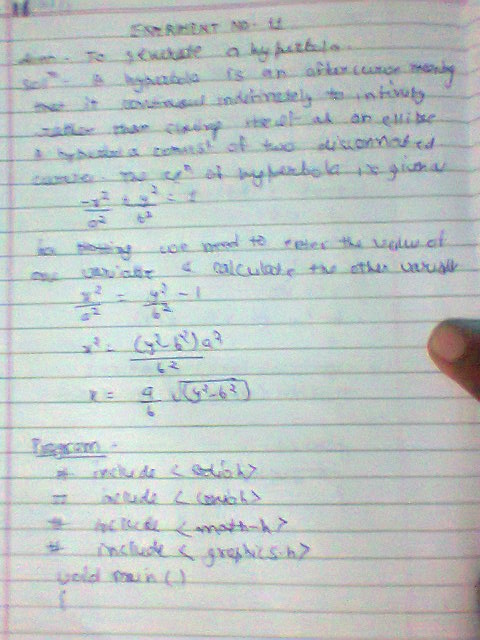 EXPERIMENT NO. 11
Aim - To generate a hyperbola.
Solⁿ - A hyperbola is an after curve meaning
that it continues indefinitely to infinity
rather than closing itself as an ellipse
A hyperbola consist of two disconnected
curves. The eqⁿ of hyperbola is given as
-x²/a² + y²/b² = 1
for we need to enter the value of
one variable & calculate the other variable
x²/a² = y²/b² - 1
x² = (y²-b²)a²/b²
x = a/b √(y²-b²)
Program -
# include <stdio.h>
# include <conio.h>
# include <math.h>
# include <graphics.h>
void main ()
{